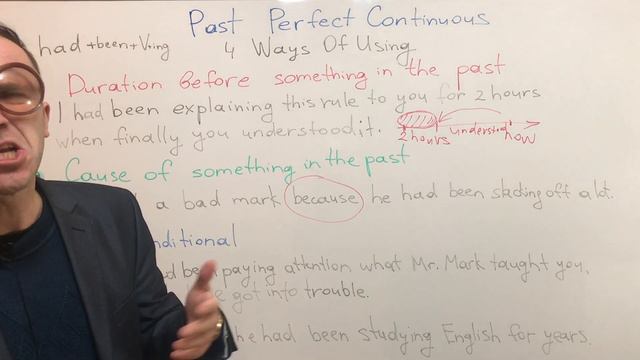 Past Perfect Continuous
had+been+Ving
4 Ways Of Using
Duration before something in the past
I had been explaining this rule to you for 2 hours
when finally you understood it.
2 hours understood now
Cause of something in the past
a bad mark because he had been slacking off a lot.
nditional
paying attention what Mr. Mark taught you,
got into trouble.
he had been studying English for years.